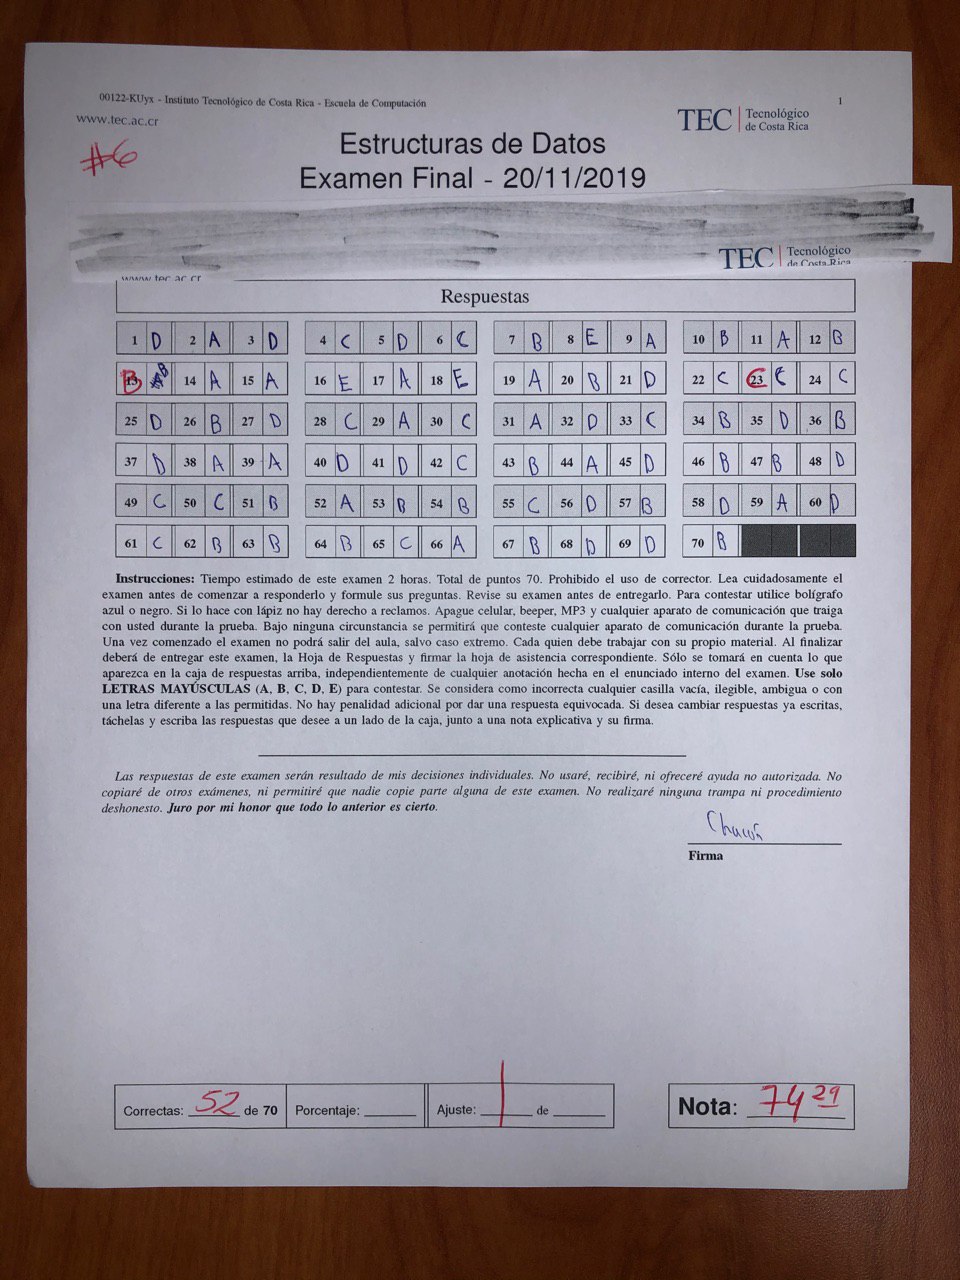 00122-KUyx - Instituto Tecnológico de Costa Rica - Escuela de Computación 1
www.tec.ac.cr
TEC Tecnológico de Costa Rica
#6
Estructuras de Datos
Examen Final - 20/11/2019
TEC Tecnológico de Costa Rica
www.tec.ac.cr
Respuestas
1 D 2 A 3 D 4 C 5 D 6 C 7 B 8 E 9 A 10 B 11 A 12 B
13 B 14 A 15 A 16 E 17 A 18 E 19 A 20 B 21 D 22 C 23 C 24 C
25 D 26 B 27 D 28 C 29 A 30 C 31 A 32 D 33 C 34 B 35 D 36 B
37 D 38 A 39 A 40 D 41 D 42 C 43 B 44 A 45 D 46 B 47 B 48 D
49 C 50 C 51 B 52 A 53 B 54 B 55 C 56 D 57 B 58 D 59 A 60 D
61 C 62 B 63 B 64 B 65 C 66 A 67 B 68 D 69 D 70 B
Instrucciones: Tiempo estimado de este examen 2 horas. Total de puntos 70. Prohibido el uso de corrector. Lea cuidadosamente el
examen antes de comenzar a responderlo y formule sus preguntas. Revise su examen antes de entregarlo. Para contestar utilice bolígrafo
azul o negro. Si lo hace con lápiz no hay derecho a reclamos. Apague celular, beeper, MP3 y cualquier aparato de comunicación que traiga
con usted durante la prueba. Bajo ninguna circunstancia se permitirá que conteste cualquier aparato de comunicación durante la prueba.
Una vez comenzado el examen no podrá salir del aula, salvo caso extremo. Cada quien debe trabajar con su propio material. Al finalizar
deberá de entregar este examen, la Hoja de Respuestas y firmar la hoja de asistencia correspondiente. Sólo se tomará en cuenta lo que
aparezca en la caja de respuestas arriba, independientemente de cualquier anotación hecha en el enunciado interno del examen. Use solo
LETRAS MAYÚSCULAS (A, B, C, D, E) para contestar. Se considera como incorrecta cualquier casilla vacía, ilegible, ambigua o con
una letra diferente a las permitidas. No hay penalidad adicional por dar una respuesta equivocada. Si desea cambiar respuestas ya escritas,
táchelas y escriba las respuestas que desee a un lado de la caja, junto a una nota explicativa y su firma.
Las respuestas de este examen serán resultado de mis decisiones individuales. No usaré, recibiré, ni ofreceré ayuda no autorizada. No
copiaré de otros exámenes, ni permitiré que nadie copie parte alguna de este examen. No realizaré ninguna trampa ni procedimiento
deshonesto. Juro por mi honor que todo lo anterior es cierto.
Firma
Correctas: 52 de 70 Porcentaje: Ajuste: de Nota: 74 29